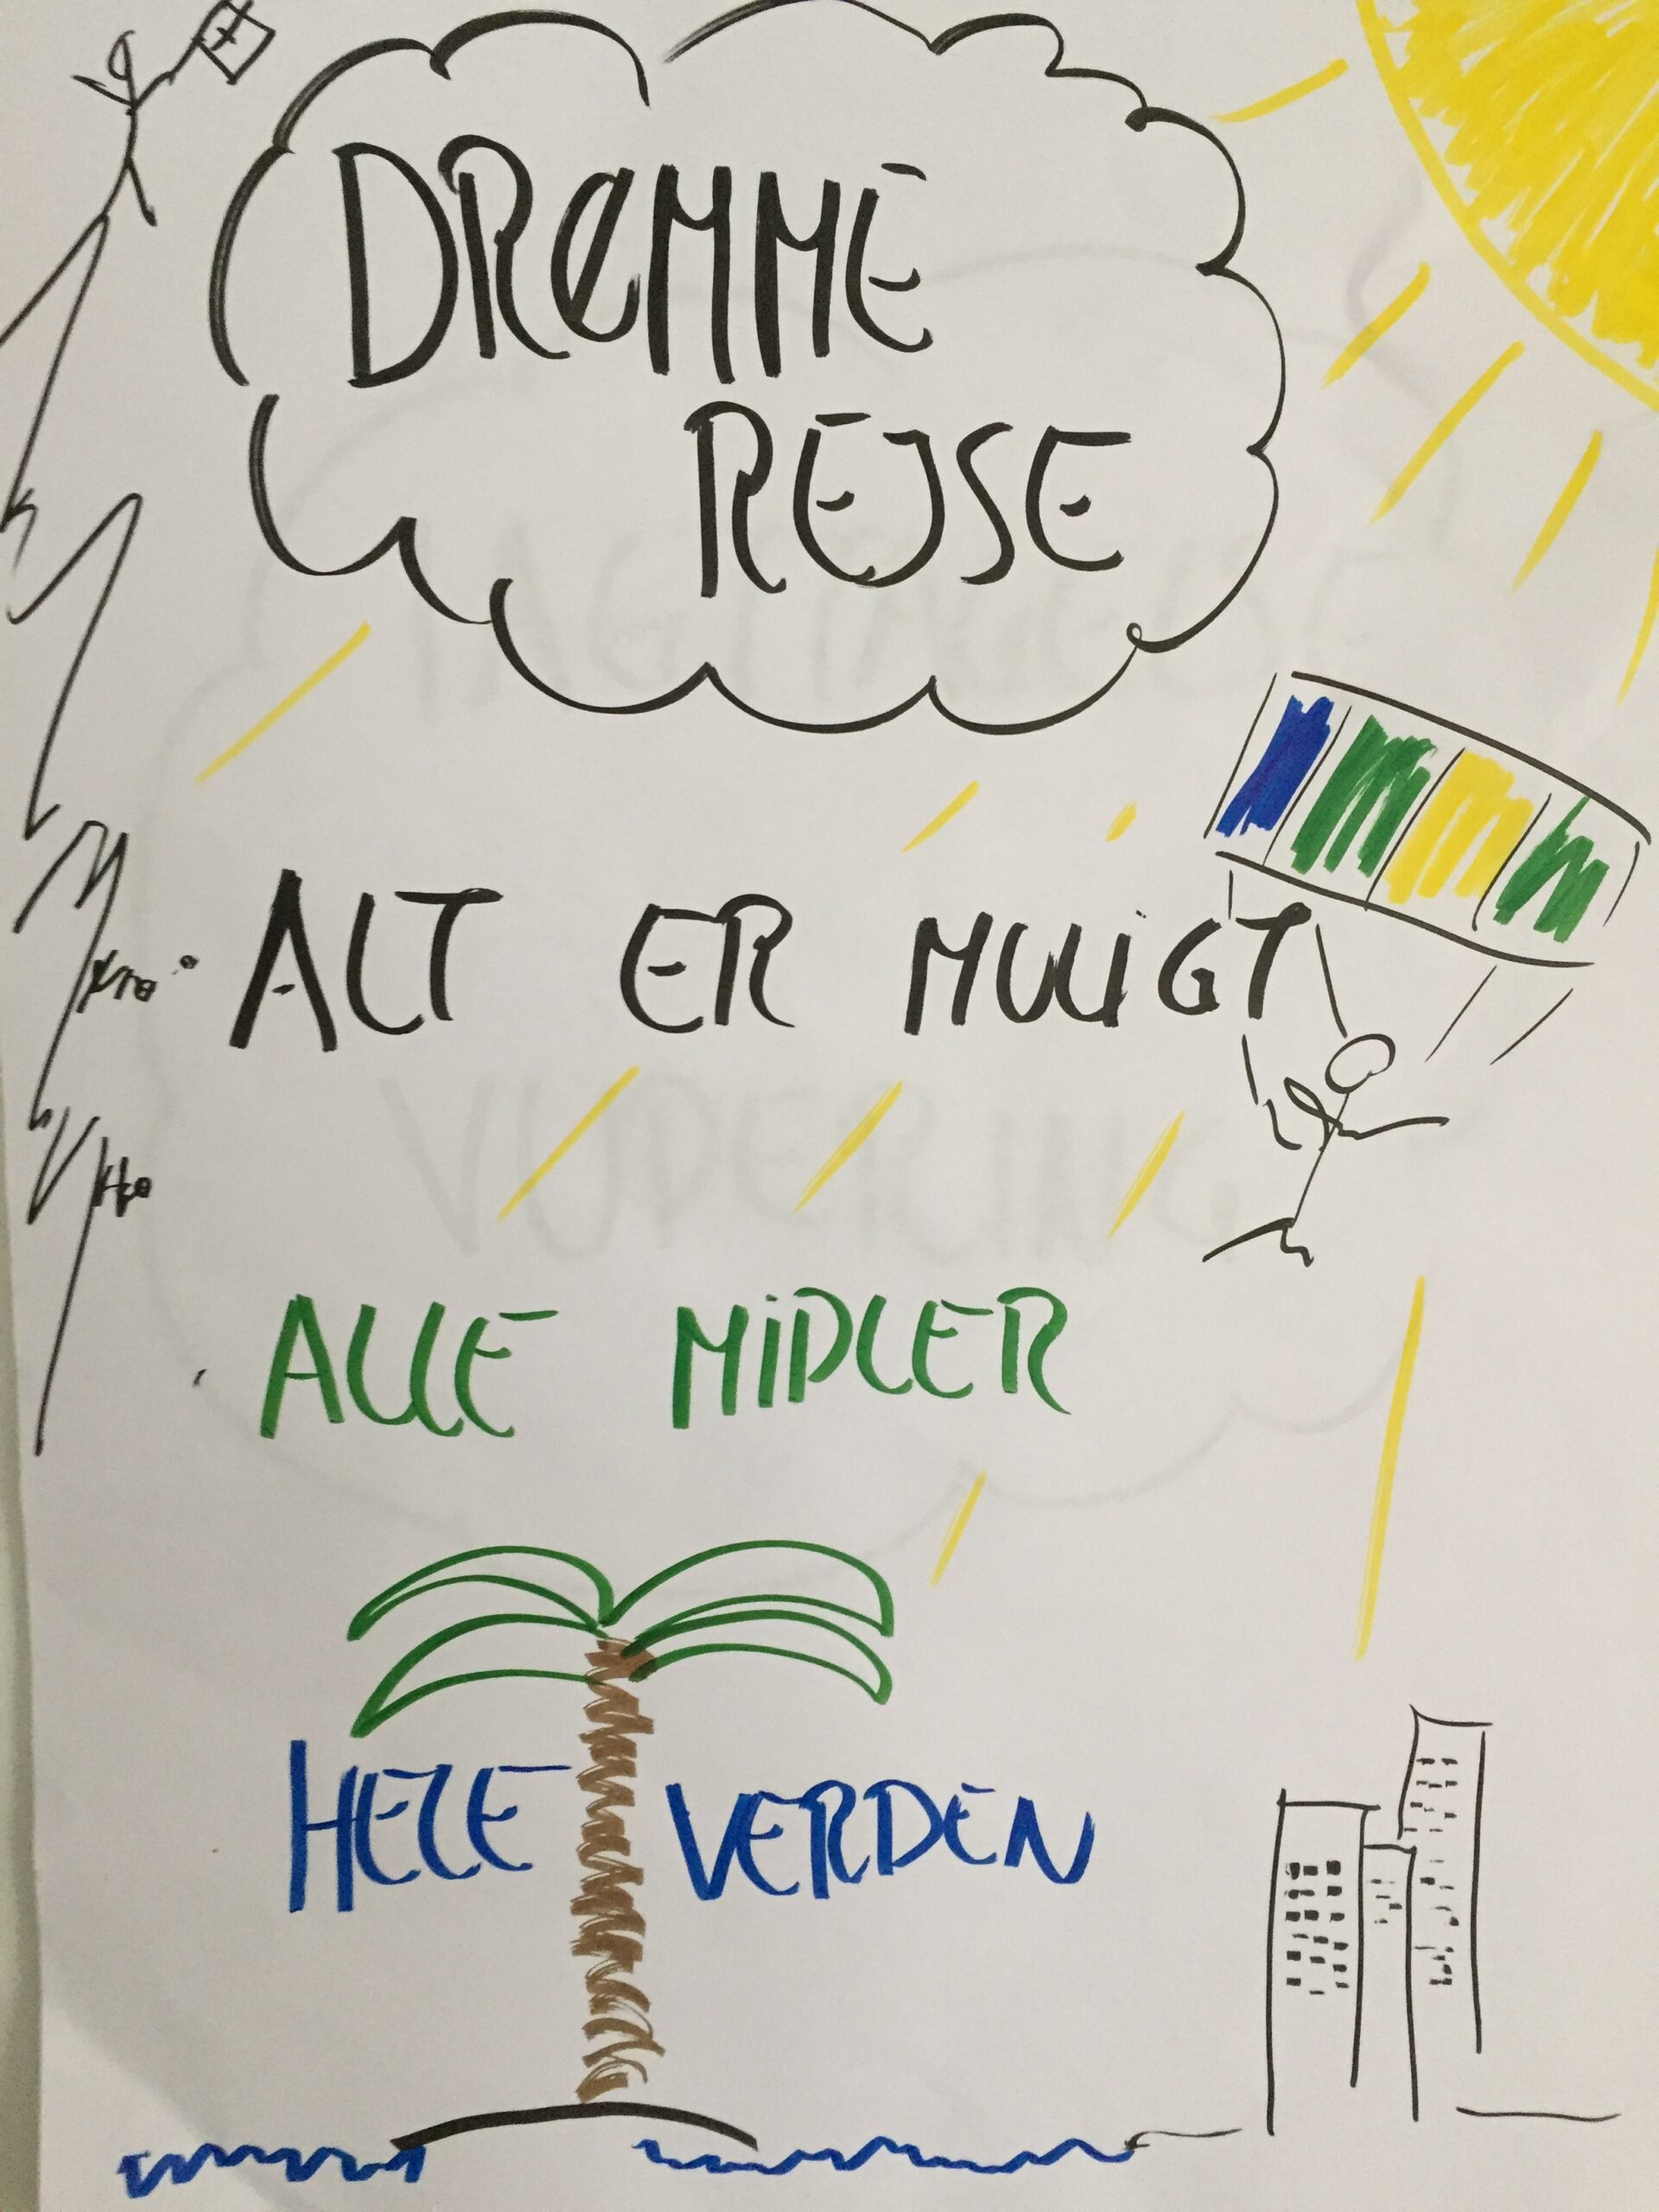 DRØMME
REJSE
ALT ER MULIGT
ALLE MIDLER
HELE VERDEN